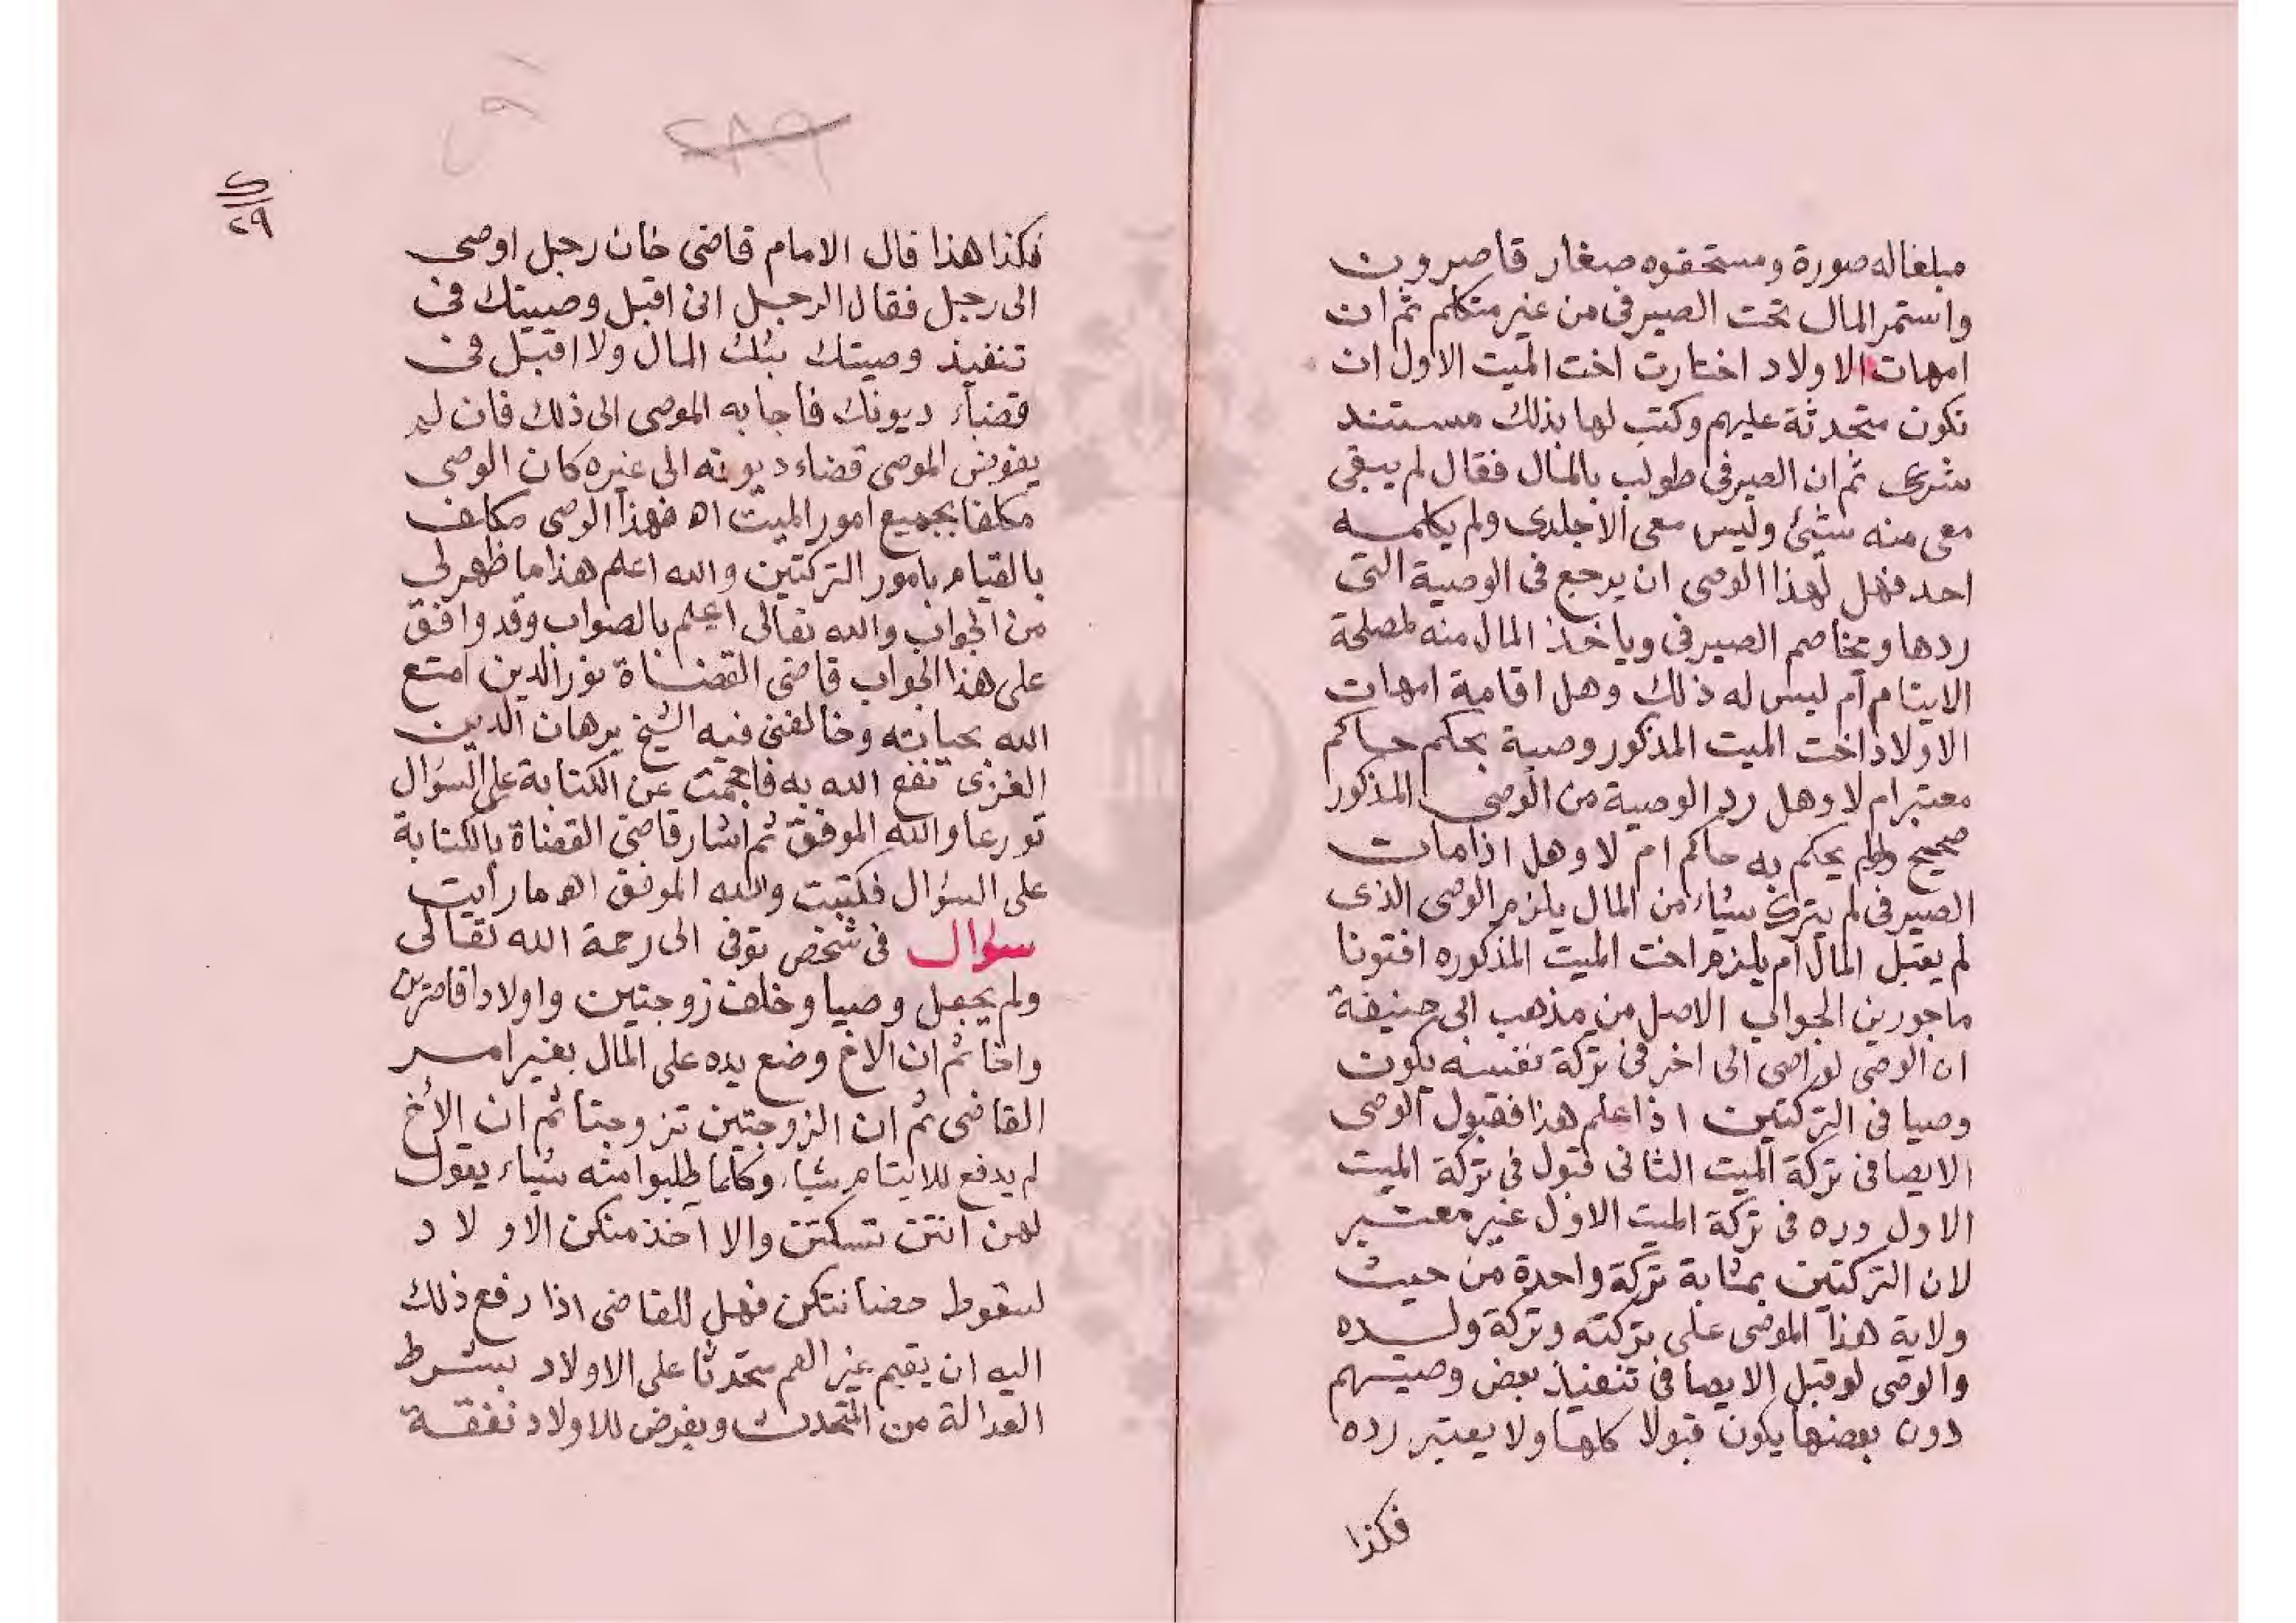 مبلغا له صورة ومستحقوه صغار قاصرون
واستمر المال تحت الصيرفى من غير متكلم ثم ان
امهات الاولاد اختارت اخت الميت الاول ان
تكون متحدثة عليهم وكتب لها بذلك مستند
شرعى ثم ان الصيرفى طولب بالمال فقال لم يبقى
معى منه شيئ وليس معى الا جلدى ولم يكلمه
احد فهل لهذا الوصى ان يرجع فى الوصية التى
ردها ويخاصم الصيرفى وياخذ المال منه لمصلحة
الايتام أم ليس له ذلك وهل اقامة امهات
الاولاد اخت الميت المذكور وصية بحكم حاكم
معتبر ام لا وهل رد الوصية من الوصى المذكور
صحيح ولم يحكم به حاكم ام لا وهل اذا مات
الصيرفى لم يترك شيئا من المال يلزم الوصى الذى
لم يقبل المال أم يلزم اخت الميت المذكوره افتونا
ماجورين الجواب الاصل من مذهب ابى حنيفة
ان الوصى لو اصى الى اخر فى تركة نفسه يكون
وصيا فى التركتين اذا علم هذا فقبول الوصى
الايصا فى تركة الميت الثانى قبول فى تركة الميت
الاول ورده فى تركة الميت الاول غير معتبر
لان التركتين بمثابة تركة واحدة من حيث
ولاية هذا الموصى على تركته وتركة ولده
والوصى لو قبل الايصا فى تنفيذ بعض وصيتهم
دون بعضها يكون قبولا كلها ولا يعتبر رده
فكذا
٢٨٩
٢٩
فكذا هذا قال الامام قاضى خان رجل اوصى
الى رجل فقال الرجل انى اقبل وصيتك فى
تنفيذ وصيتك بثلث المال ولا اقبل فى
قضاء ديونك فأجابه الموصى الى ذلك فان لم
يفوض الموصى قضاء ديونه الى غيره كان الوصى
مكلفا بجميع امور الميت اه فهذا الوصى مكلف
بالقيام بامور التركتين والله اعلم هذا ما ظهر لى
من الجواب والله تعالى اعلم بالصواب وقد وافق
على هذا الجواب قاضى القضاة نور الدين امتع
الله بحياته وخالفنى فيه الشيخ برهان الدين
الغزى نفع الله به فاحجمت عن الكتابة على السؤال
تورعا والله الموفق ثم أشار قاضى القضاة بالكتابة
على السؤال فكتبت والله الموفق اه ما رأيت
سؤال فى شخص توفى الى رحمة الله تعالى
ولم يجعل وصيا وخلف زوجتين واولادا قاصرين
واخا ثم ان الاخ وضع يده على المال بغير امر
القاضى ثم ان الزوجتين تزوجتا ثم ان الأخ
لم يدفع للايتام شيئا وكلما طلبوا منه شيئا يقول
لهن انتن تسكتن والا آخذ منكن الاولاد
لسقوط حضانتكن فهل للقاضى اذا رفع ذلك
اليه ان يقيم غير العم متحدثا على الاولاد بشرط
العدالة من المتحدث ويفرض للاولاد نفقة